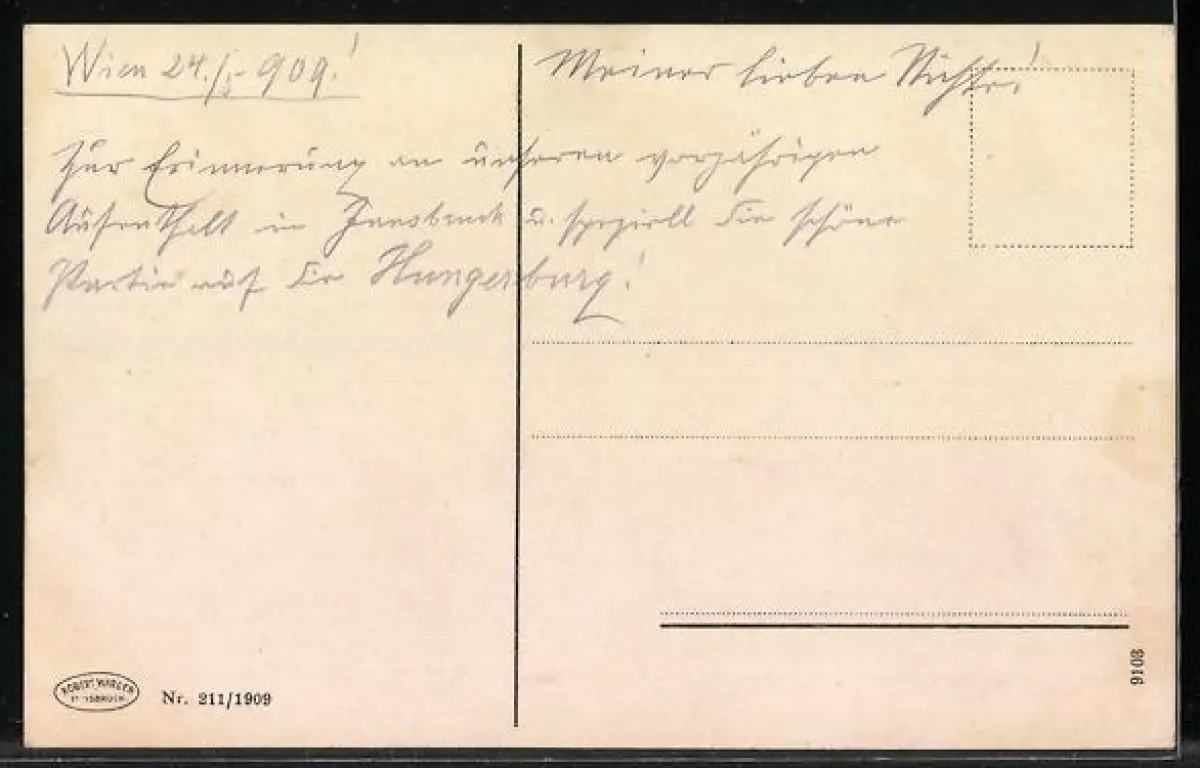 Wien 24./I. 909!
Meiner lieben Nichte!
Zur Erinnerung an unseren vorjährigen
Aufenthalt in Innsbruck u. speziell die schöne
Partie auf die Hungerburg!
INNSBRUCK
Nr. 211/1909
9103